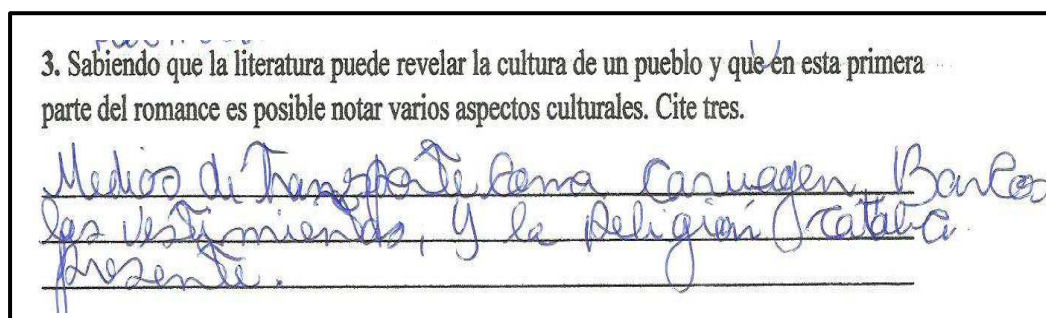 3. Sabiendo que la literatura puede revelar la cultura de un pueblo y que en esta primera
parte del romance es posible notar varios aspectos culturales. Cite tres.
Medios de Transporte como Barcos
las vestimientas, y la Religión
presente.